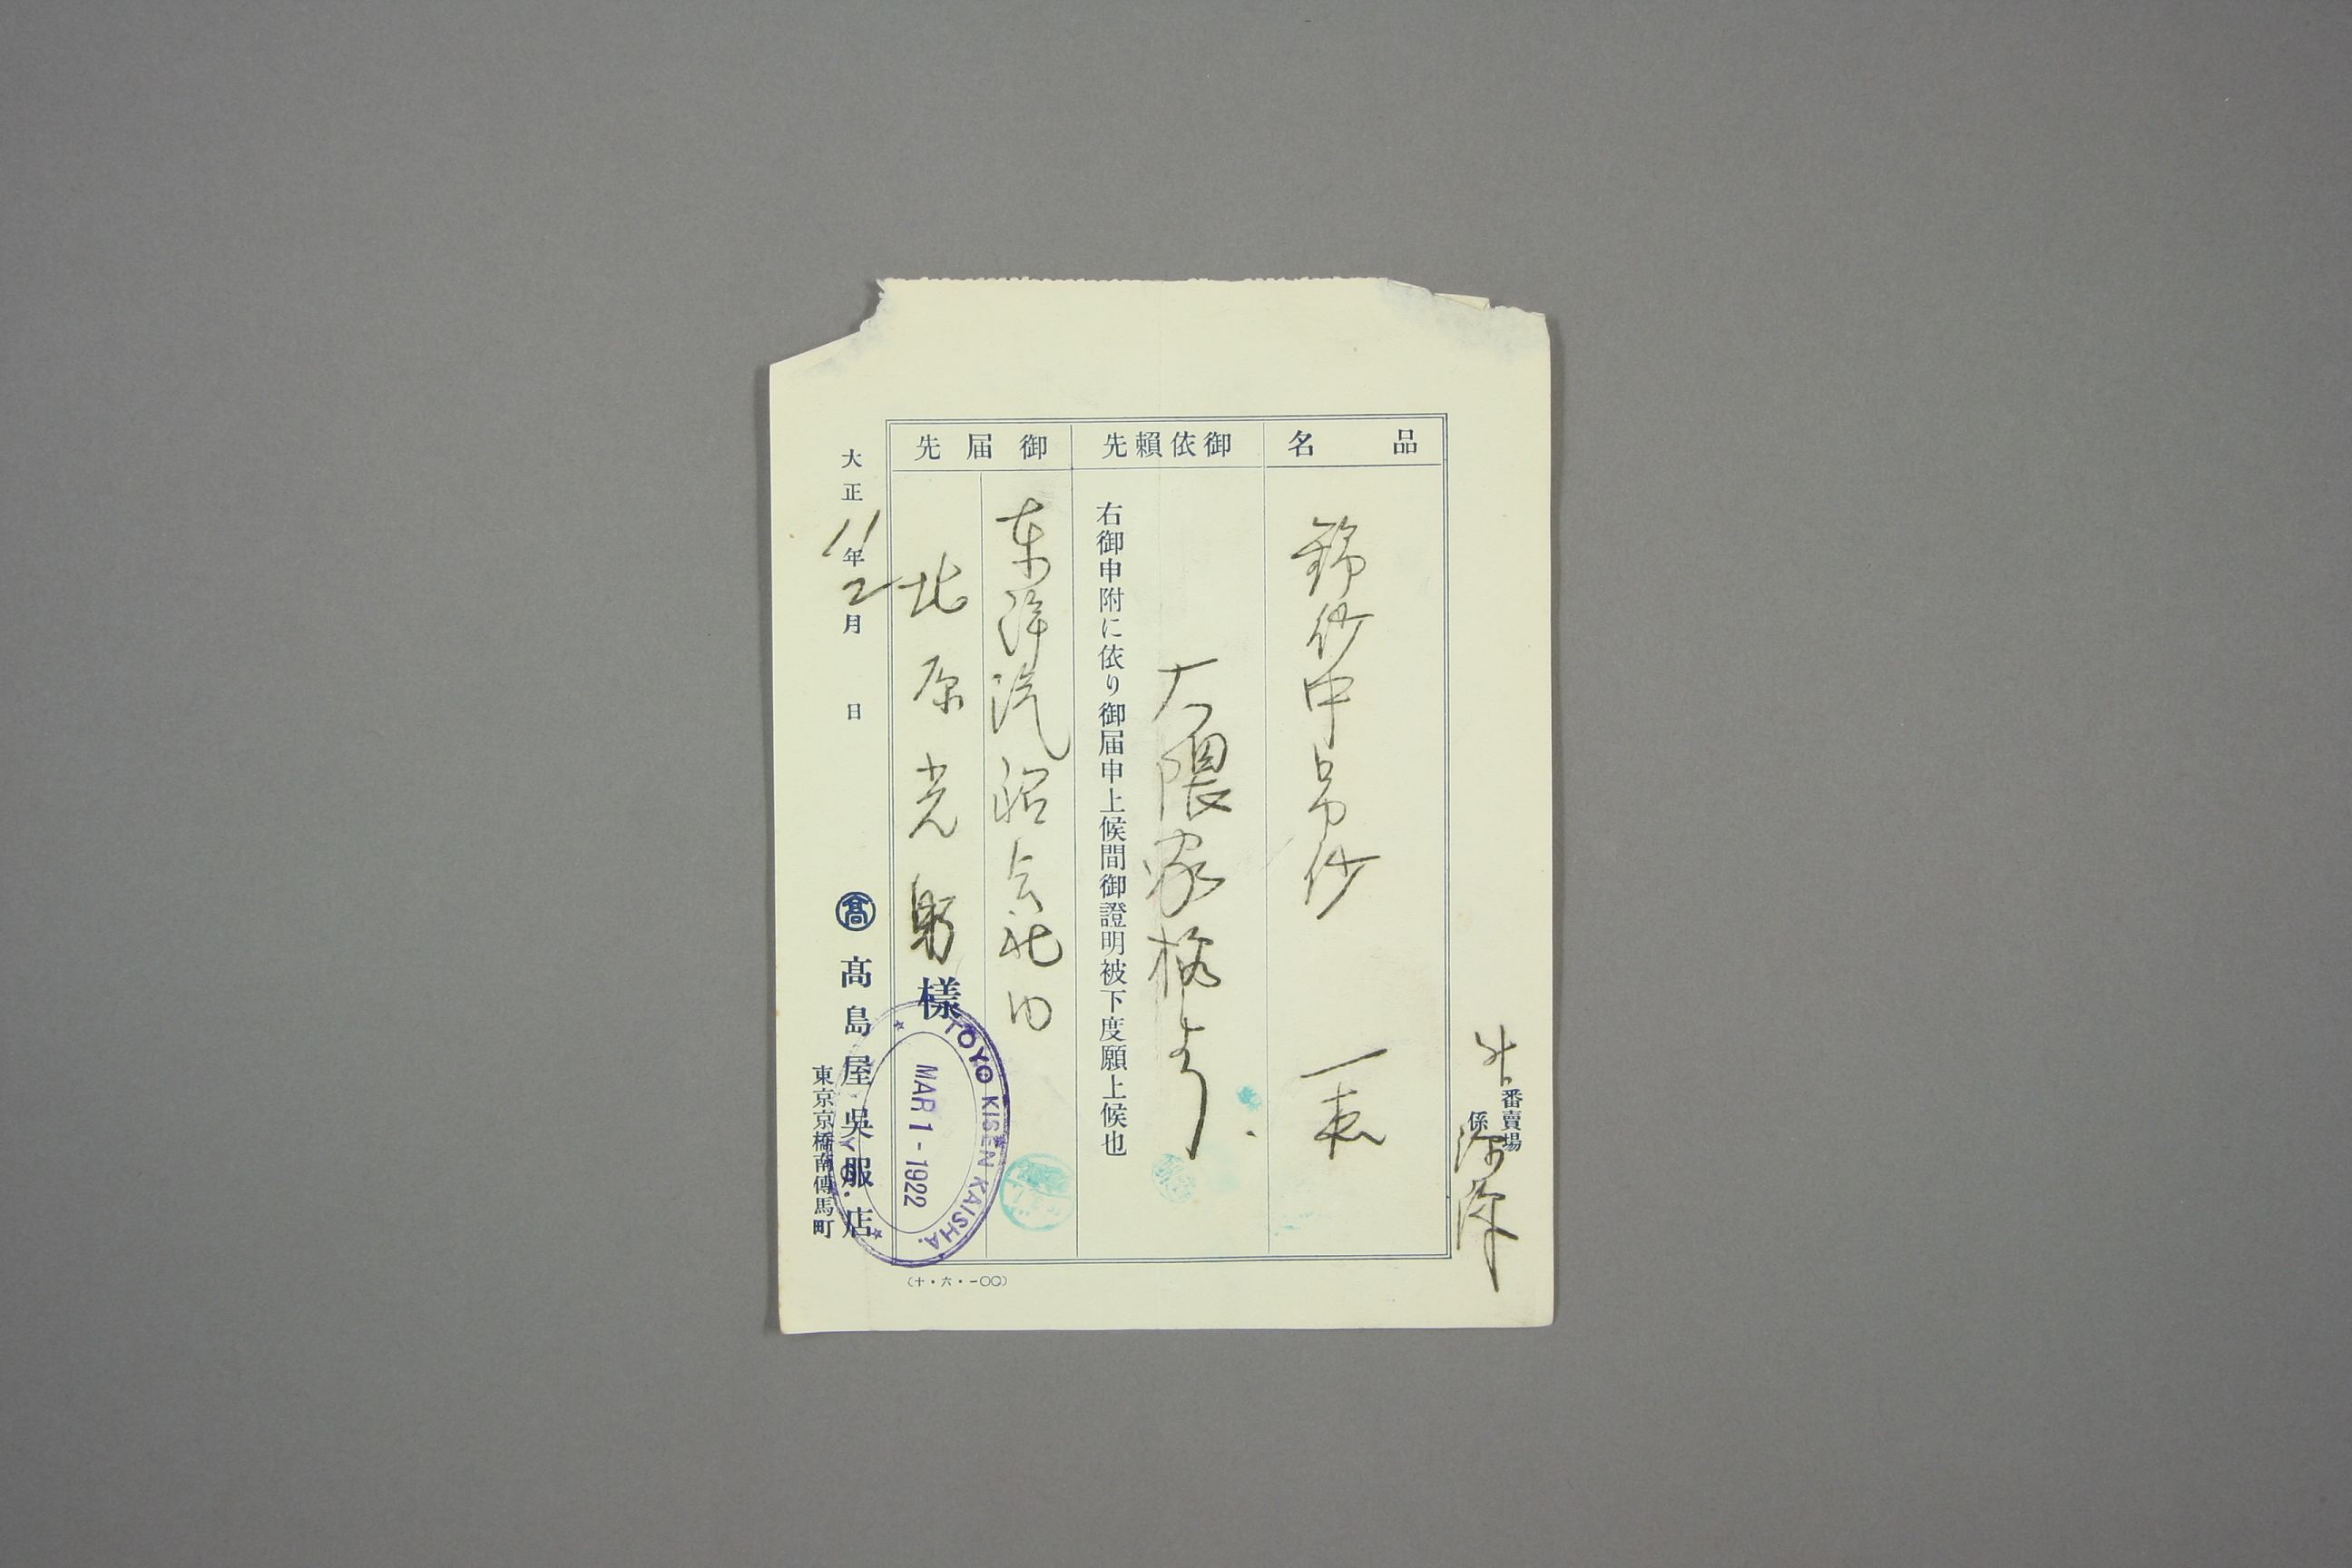 番賣場
係
品名
錦紗中帛紗 一表
御依賴先
大隈家様よりノ
右御申附に依り御届申上候間御證明被下度願上候也
御届先
東洋汽船会社内
北原光躬様
大正11年2月 日
髙 髙島屋吳服店
東京京橋南傳馬町
TOYO KISEN KAISHA.
MAR 1-1922
(十・六・一〇〇)